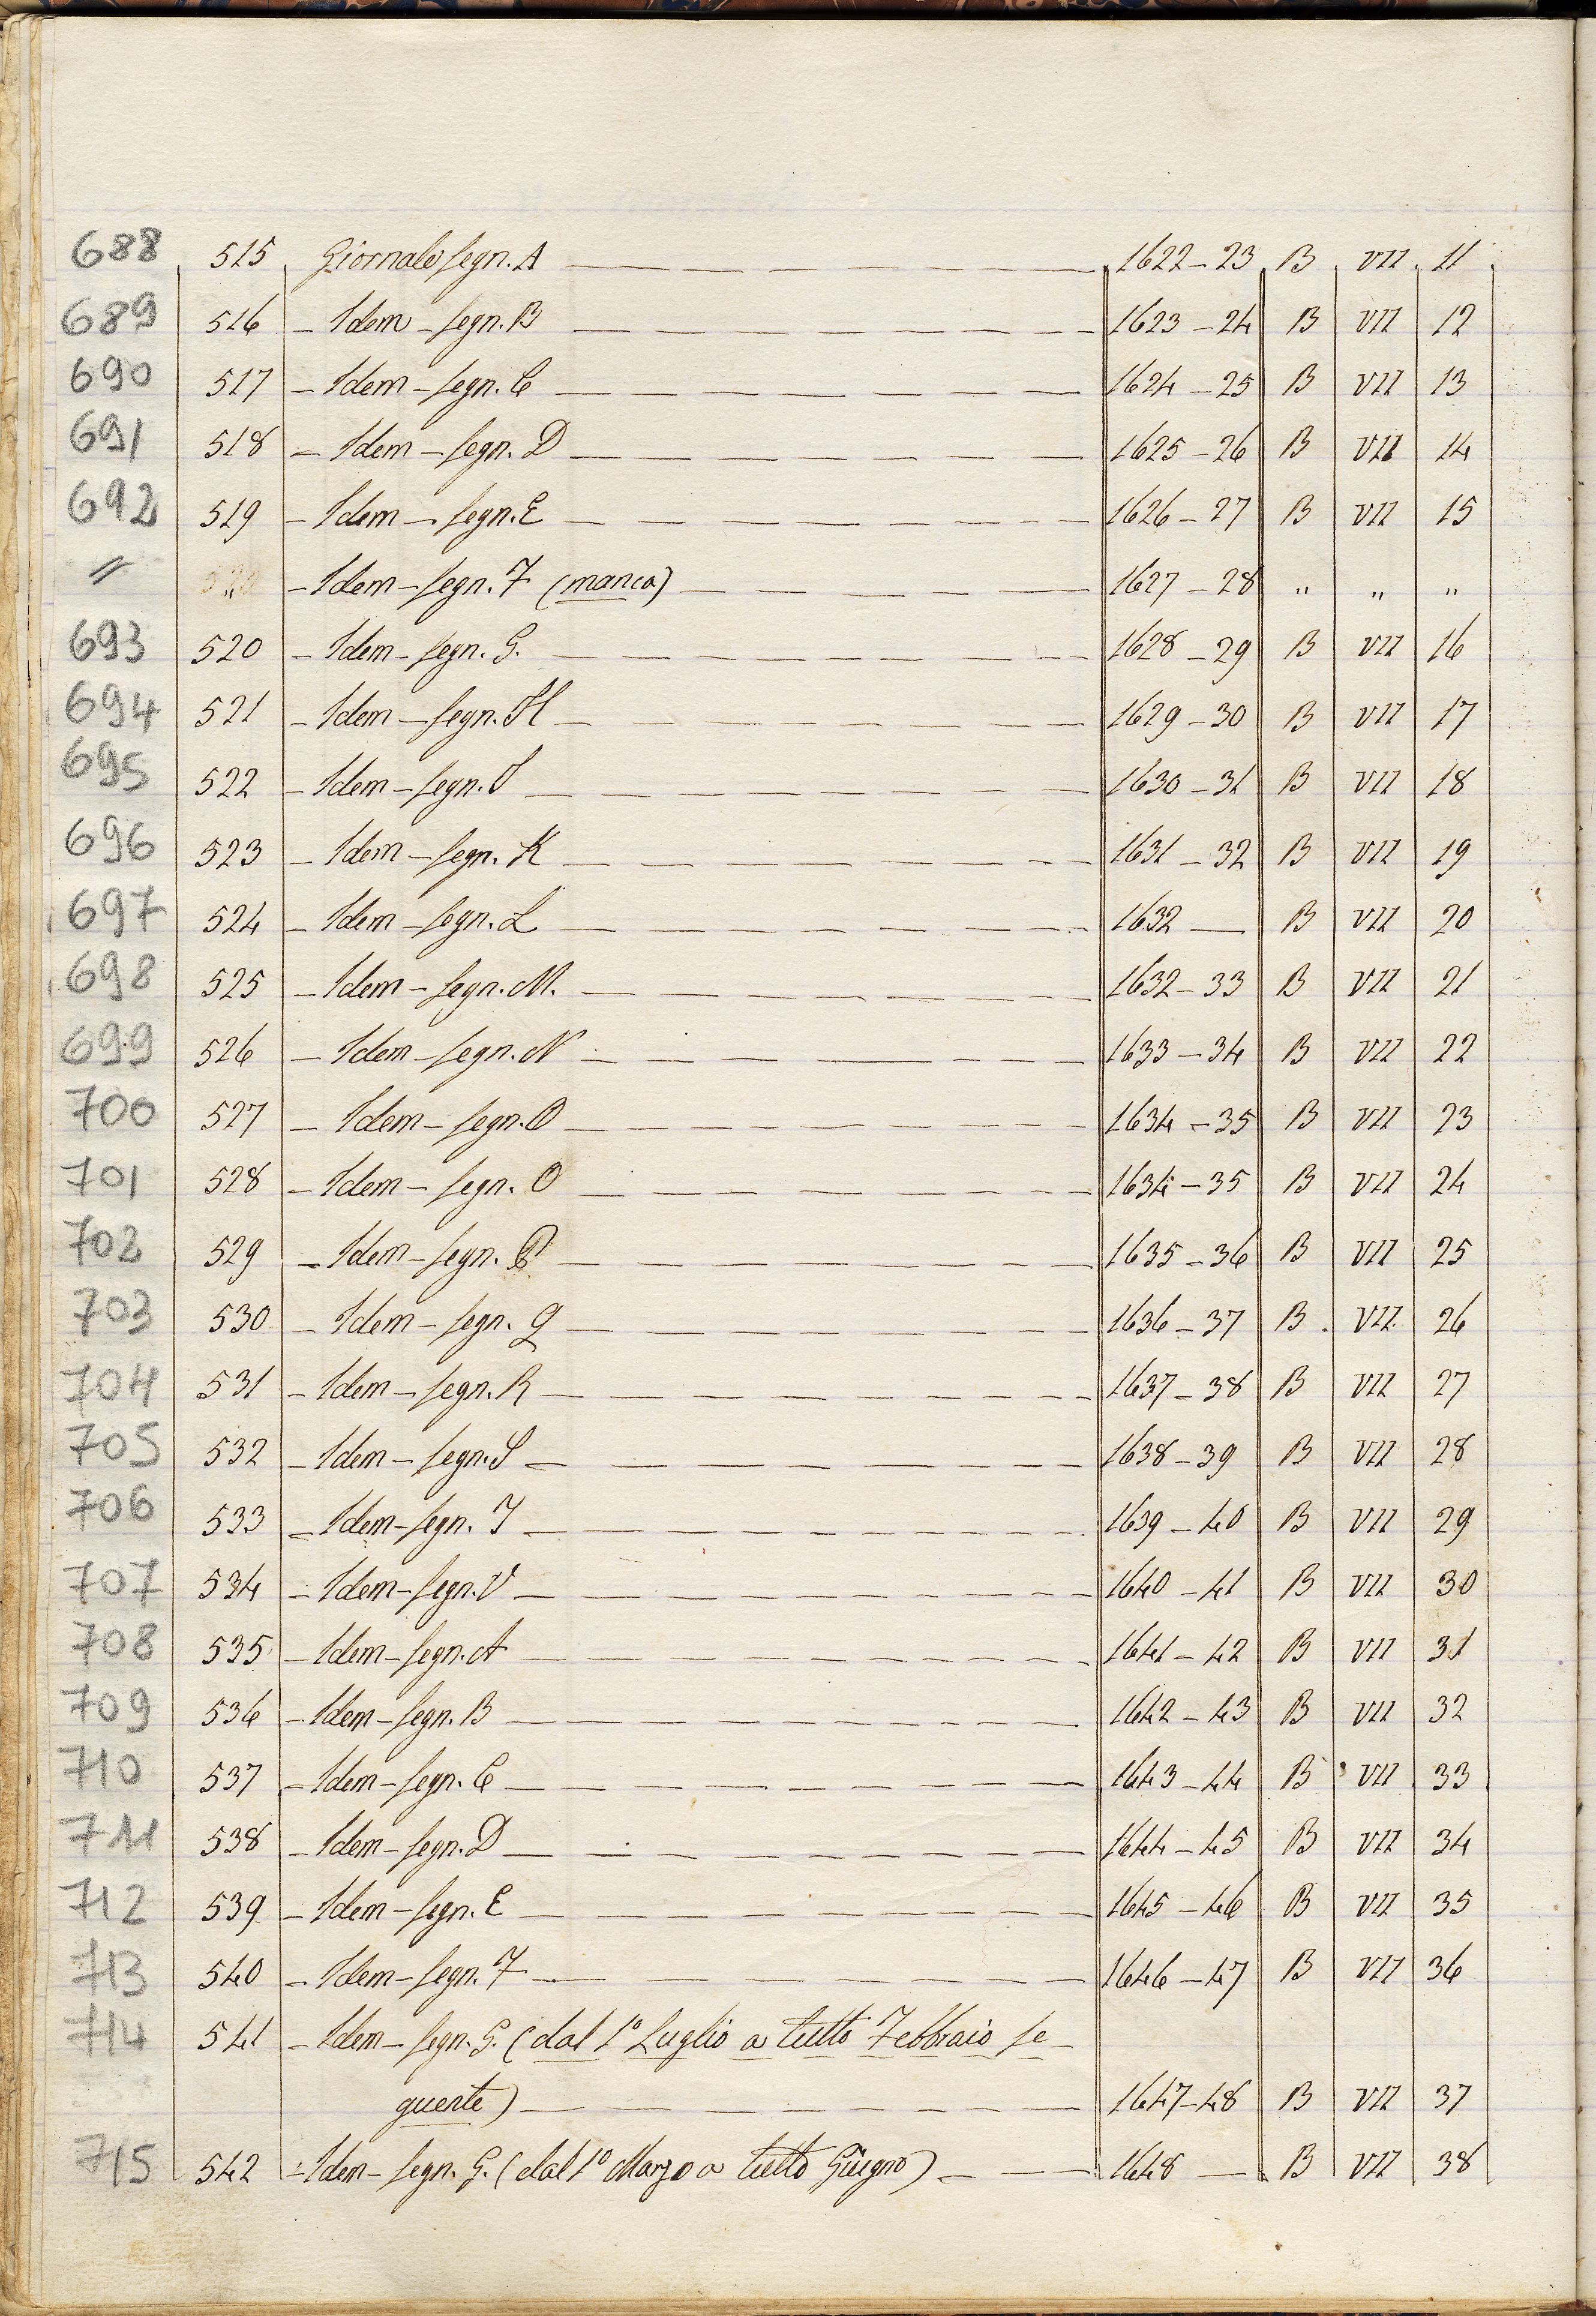 688 515 Giornale segn. A 1622-23 B VII 11
689 516 - Idem - segn. B 1623-24 B VII 12
690 517 - Idem - segn. C 1624-25 B VII 13
691 518 - Idem - segn. D 1625-26 B VII 14
692 519 - Idem - segn. E 1626-27 B VII 15
〃 „ - Idem - segn. F (manca) 1627-28 „ „ „
693 520 - Idem - segn. G. 1628-29 B VII 16
694 521 - Idem - segn. H 1629-30 B VII 17
695 522 - Idem - segn. I 1630-31 B VII 18
696 523 - Idem - segn. K 1631-32 B VII 19
697 524 - Idem - segn. L 1632 — B VII 20
698 525 - Idem - segn. M. 1632-33 B VII 21
699 526 - Idem - segn. N 1633-34 B VII 22
700 527 - Idem - segn. O 1634-35 B VII 23
701 528 - Idem - segn. O 1634-35 B VII 24
702 529 - Idem - segn. P 1635-36 B VII 25
703 530 - Idem - segn. Q 1636-37 B VII 26
704 531 - Idem - segn. R 1637-38 B VII 27
705 532 - Idem - segn. S 1638-39 B VII 28
706 533 - Idem - segn. T 1639-40 B VII 29
707 534 - Idem - segn. V 1640-41 B VII 30
708 535 - Idem - segn. A 1641-42 B VII 31
709 536 - Idem - segn. B 1642-43 B VII 32
710 537 - Idem - segn. C 1643-44 B VII 33
711 538 - Idem - segn. D 1644-45 B VII 34
712 539 - Idem - segn. E 1645-46 B VII 35
713 540 - Idem - segn. F 1646-47 B VII 36
714 541 - Idem - segn. G. (dal 1º Luglio a tutto Febbraio se-
guente) 1647-48 B VII 37
715 542 - Idem - segn. G. (dal 1º Marzo a tutto Giugno) 1648 — B VII 38